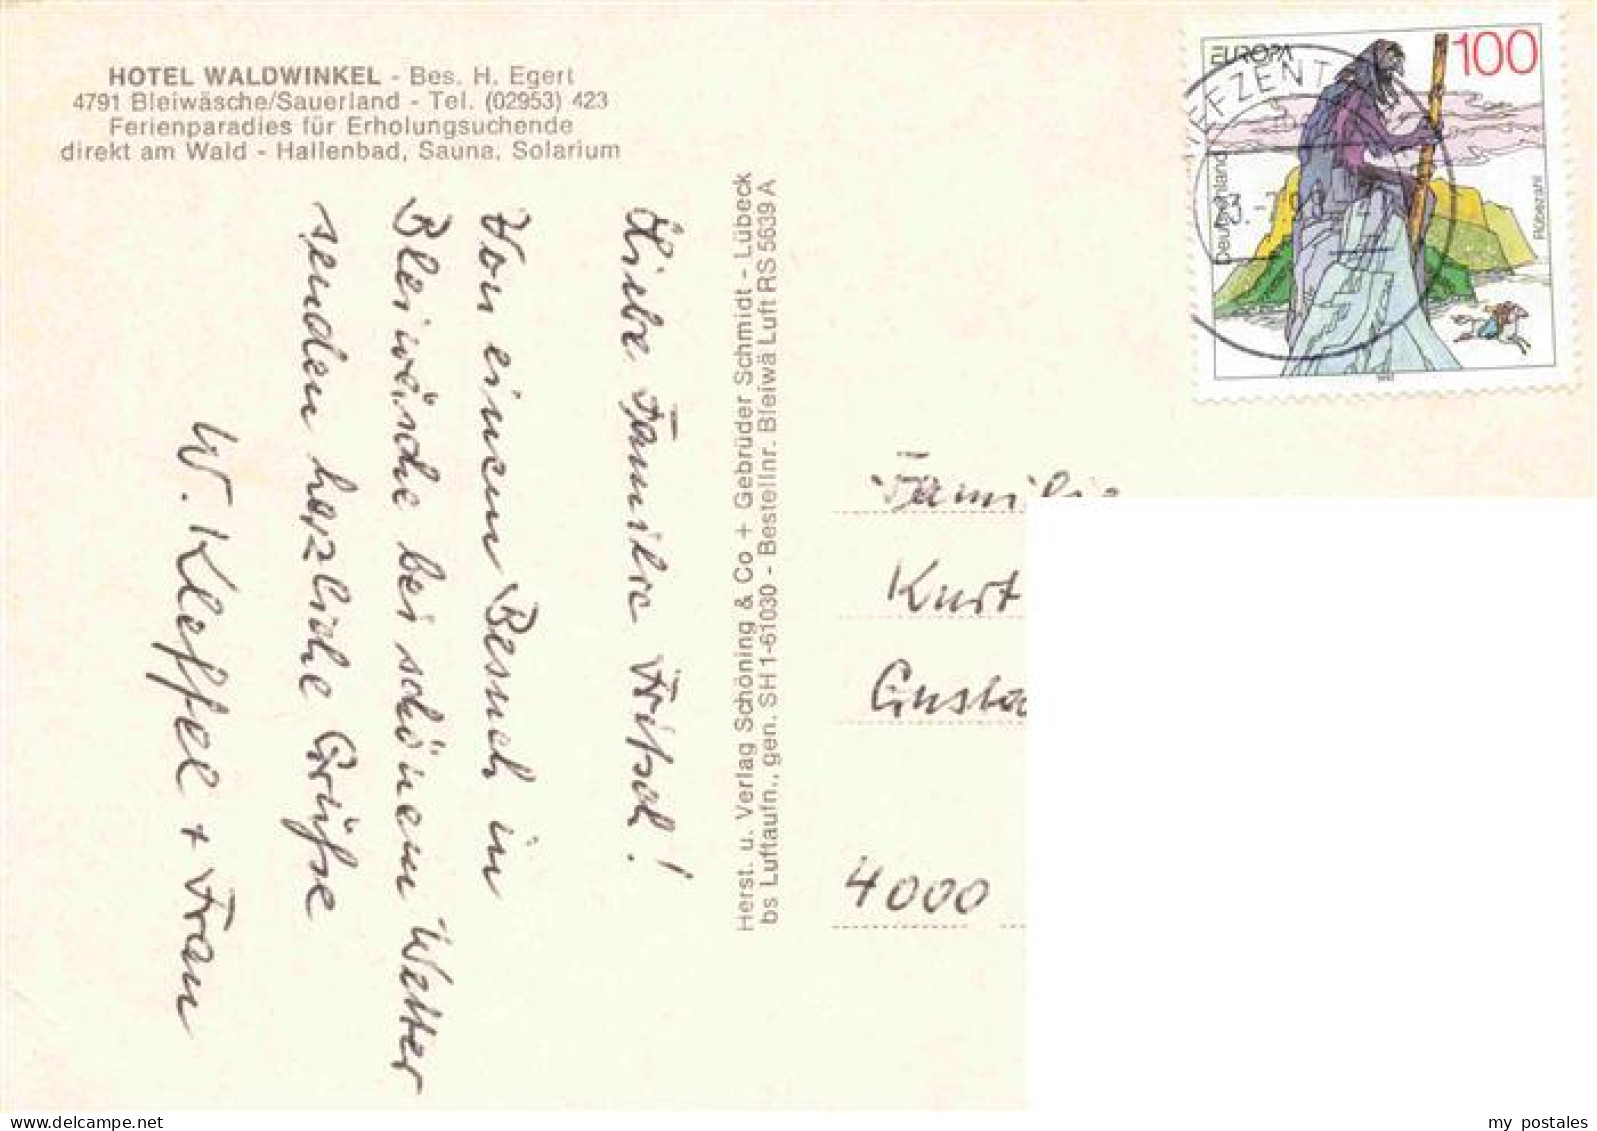 HOTEL WALDWINKEL - Bes. H. Egert
4791 Bleiwäsche/Sauerland - Tel. (02953) 423
Ferienparadies für Erholungsuchende
direkt am Wald - Hallenbad, Sauna, Solarium
Liebe Familie Fritsch!
Von einem Besuch in
Bleiwäsche bei schönem Wetter
senden herzliche Grüße
W. Kleffel + Frau
Herst. u. Verlag Schöning & Co + Gebrüder Schmidt - Lübeck
bs Luftaufn., gen. SH 1-61030 - Bestellnr. Bleiwä Luft RS 5639 A
EUROPA
100
Deutschland
Rübezahl
Familie
Kurt
4000
my postales